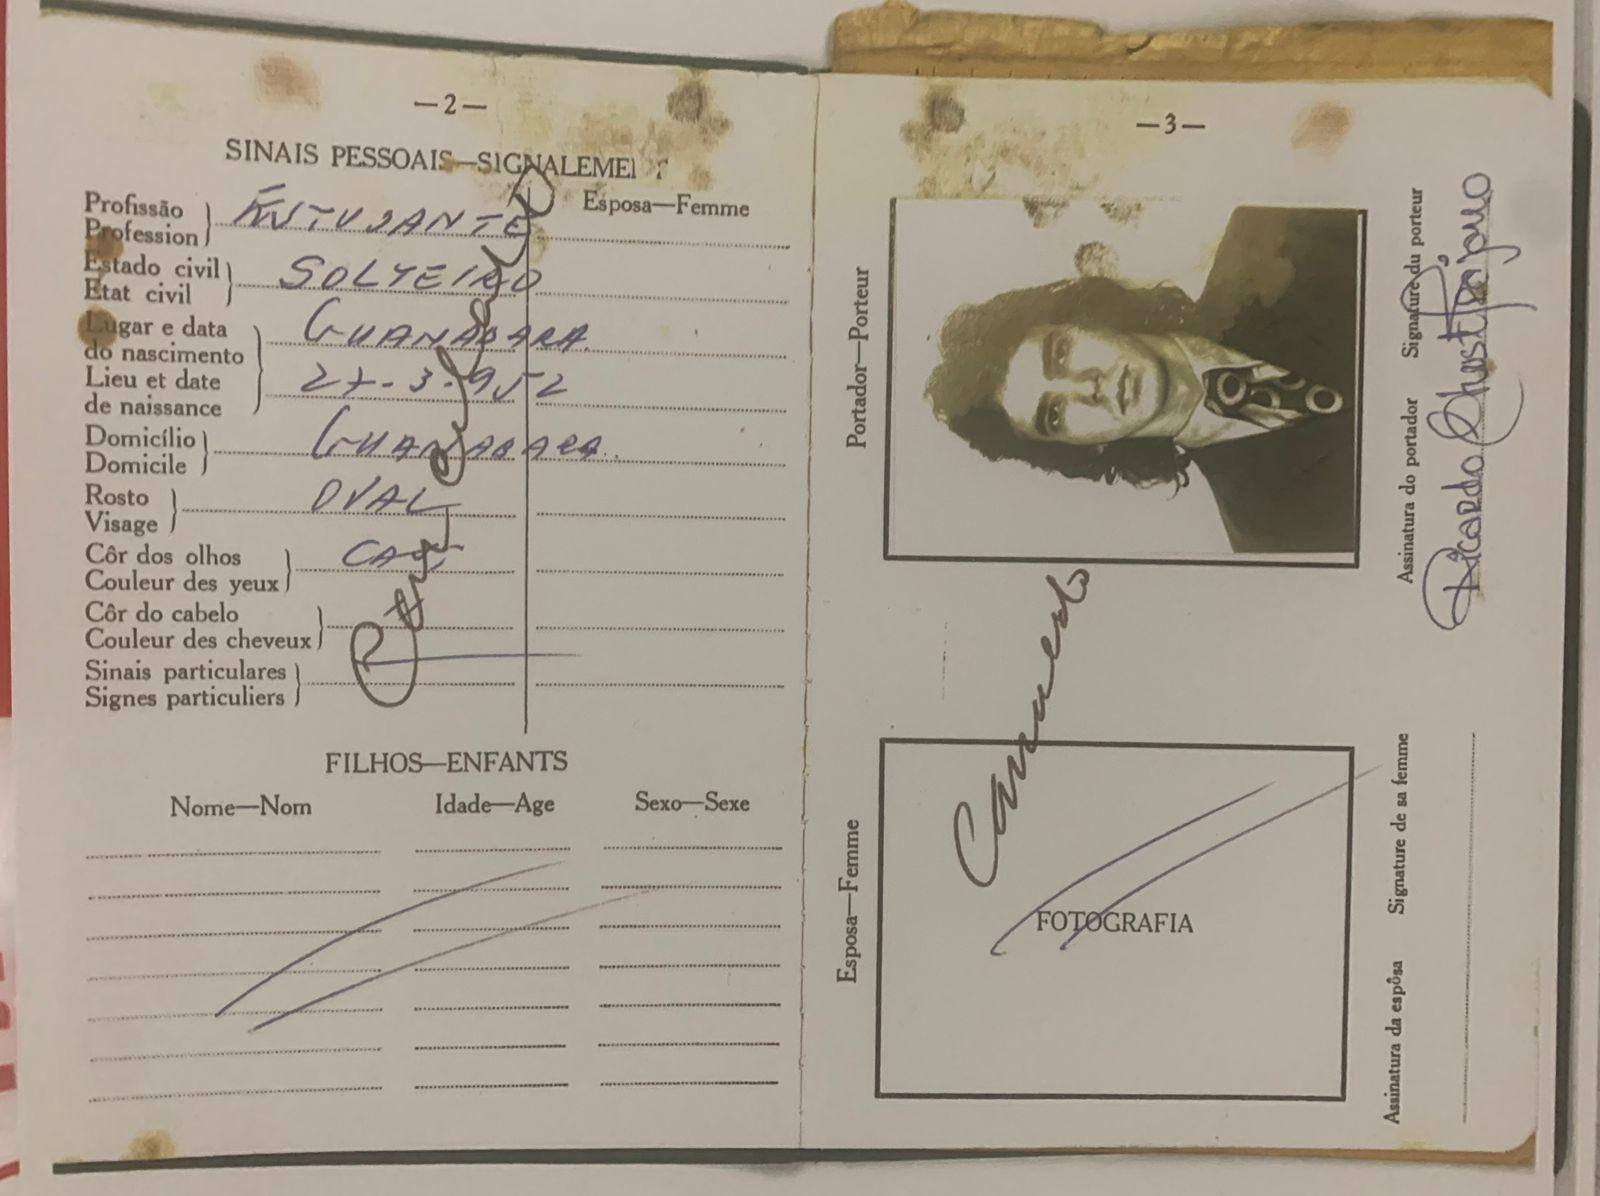 —2—
SINAIS PESSOAIS—SIGNALEME
Profissão
Profession
ESTUDANTE
Esposa—Femme
Estado civil
Etat civil
SOLTEIRO
Lugar e data
do nascimento
Lieu et date
de naissance
GUANABARA
27-3-952
Domicílio
Domicile
GUANABARA
Rosto
Visage
OVAL
Côr dos olhos
Couleur des yeux
CAST
Côr do cabelo
Couleur des cheveux
Sinais particulares
Signes particuliers
FILHOS—ENFANTS
Nome—Nom Idade—Age Sexo—Sexe
—3—
Portador—Porteur
Assinatura do portador Signature du porteur
Ricardo
Cancelado
Esposa—Femme
FOTOGRAFIA
Assinatura da espôsa Signature de sa femme